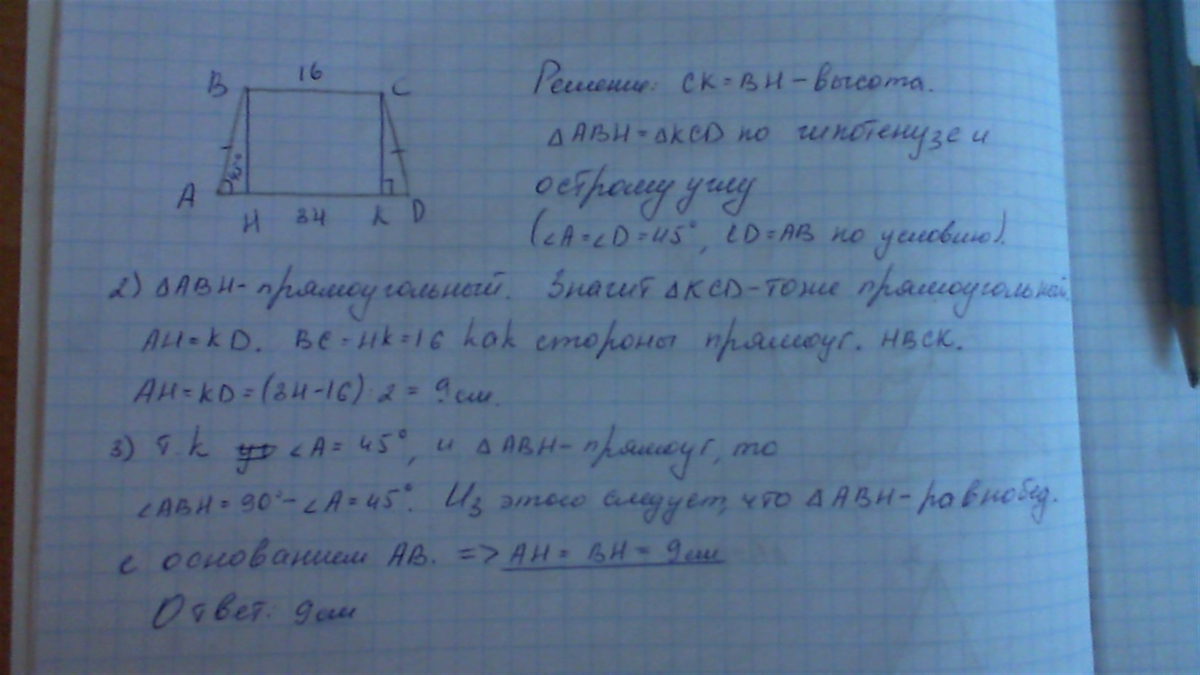 B 16 C
A H 34 K D
Решение: CK = BH – высота.
ΔABH = ΔKCD по гипотенузе и
острому углу
(∠A = ∠D = 45°, CD = AB по условию).
2) ΔABH – прямоугольный. Значит ΔKCD – тоже прямоугольный.
AH = KD. BC = HK = 16 как стороны прямоуг. HBCK.
AH = KD = (34 – 16) : 2 = 9 см.
3) Т.к ∠A = 45°, и ΔABH – прямоуг, то
∠ABH = 90° – ∠A = 45°. Из этого следует, что ΔABH – равнобед.
с основанием AB. => AH = BH = 9 см
Ответ: 9 см